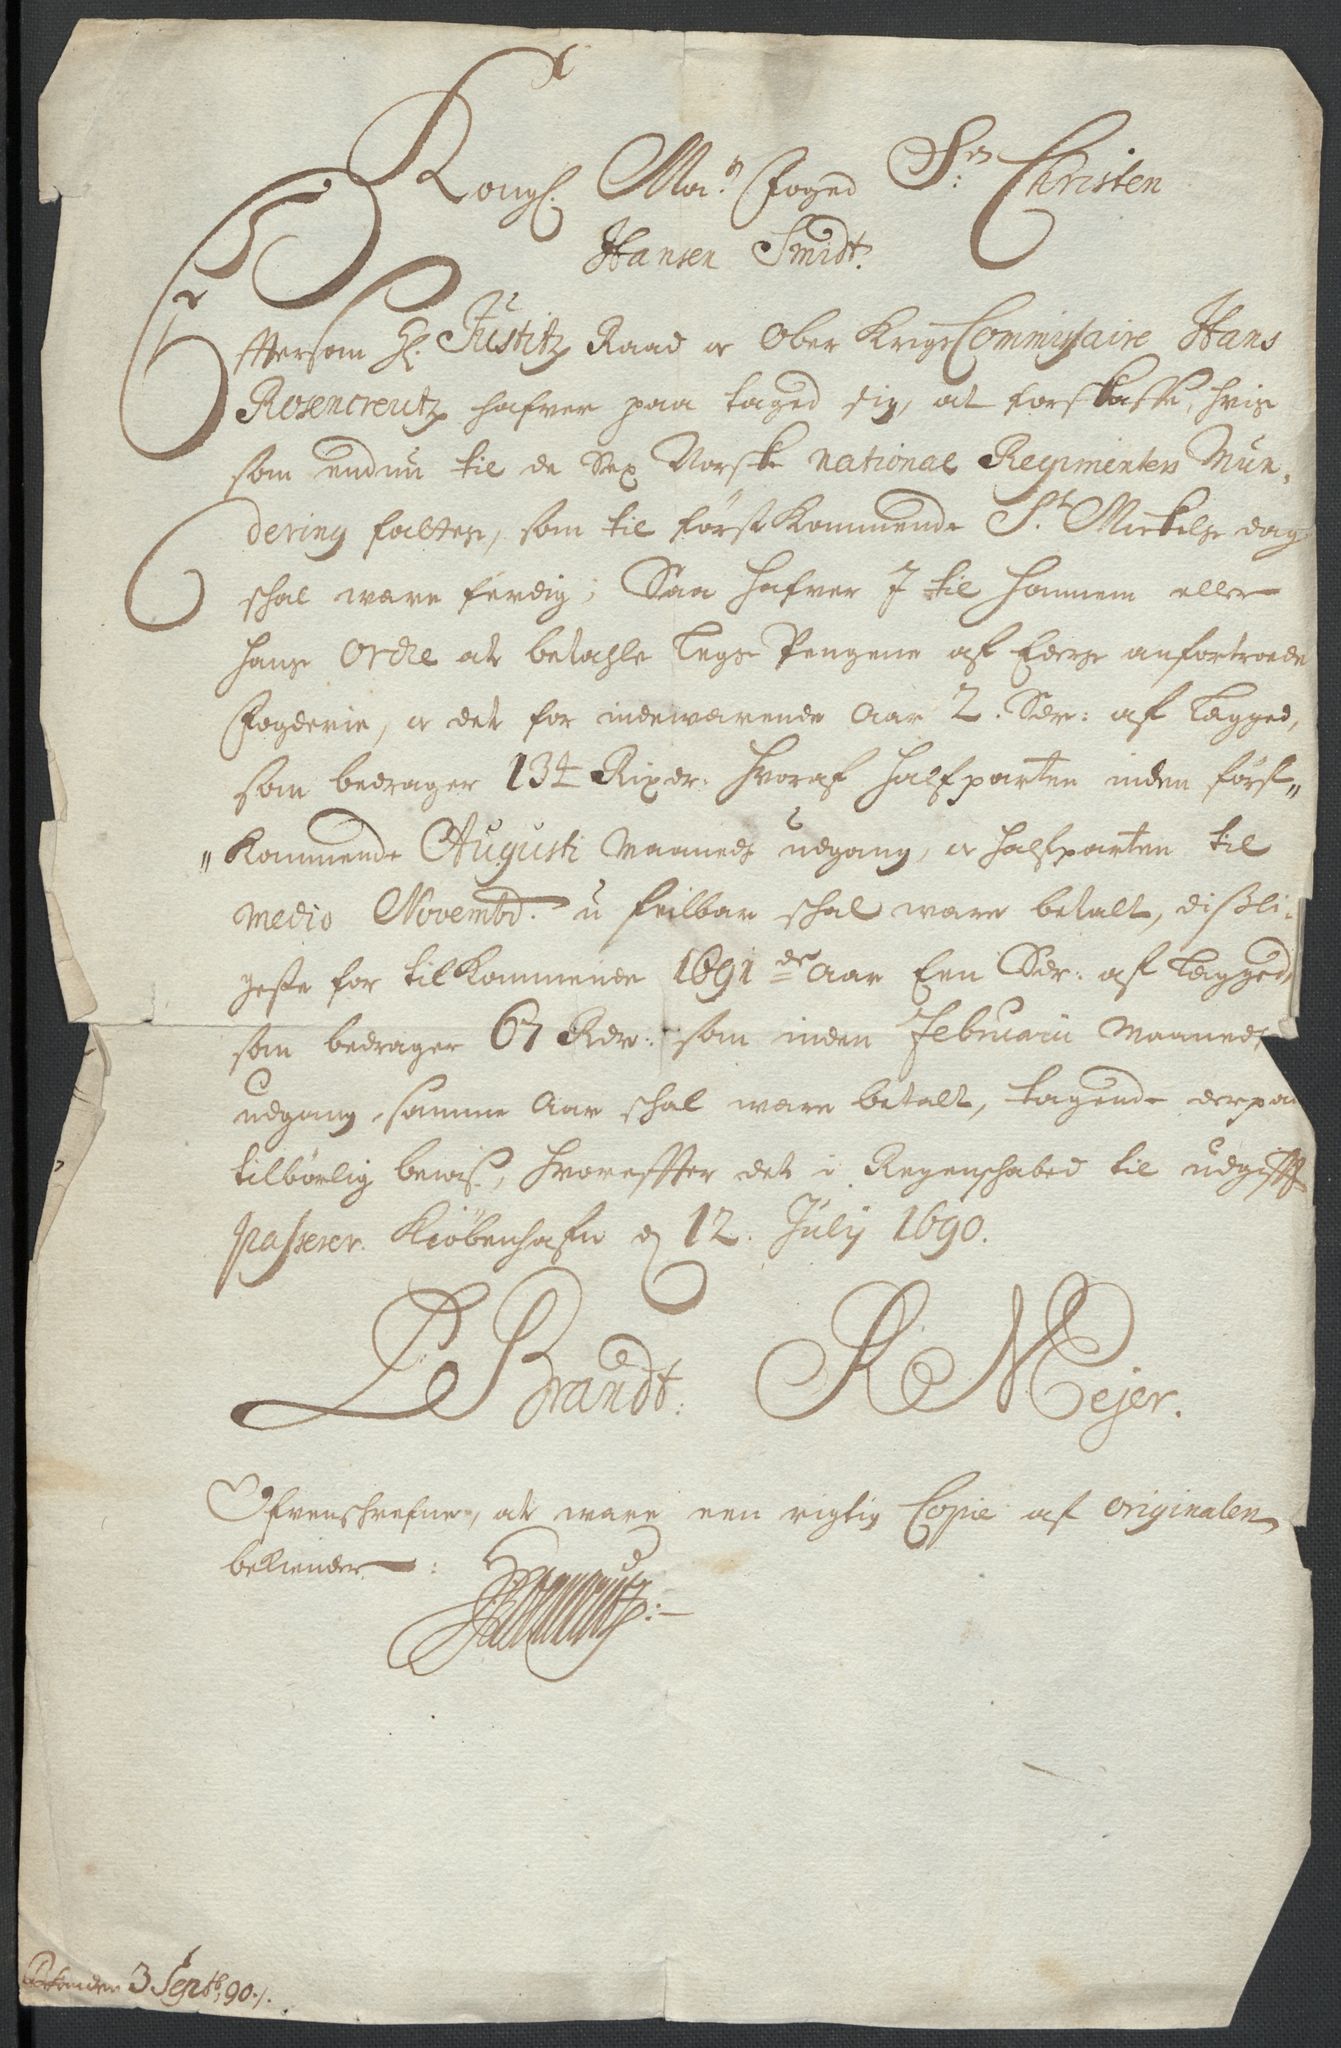 Kongl. Ma.ts Foged Sr. Christen
Hansen Smidt.
Eftersom Hl. Justitz Raad oc Ober KrigsCommissaire Hans
Rosencreutz hafver paa taged sig, at forskaffe, hvis
som endnu til de Sex Norske national Regimenters Mun-
dering faltes, som til førstKommende St. Mickels dag
schal være ferdig; Saa hafver I til hannem eller
hans Ordre at betahle Legs Pengene af Eders anfortroede
Fogderie, oc det for indeværende Aar 2. Rdr: af Lægged,
som bedrager 134 Rixdr: hvoraf halfparten inden først-
Kommende Augusti Maaneds udgang, oc halfparten til
Medio Novembr. u feilbar schal være betalt, dißli-
geste for tilKommende 1691de Aar Een Rdr: af Lægged
som bedrager 67 Rdr: som inden Februarii Maaneds
udgang samme Aar schal være betalt, tagende derpaa
tilbørlig beviß, hvorefter det i Regenschabed til udgifft
passerer. Kiøbenhafn d 12. Julij 1690.
P Brandt. R Mejer.
Ofvenschrefne, at være een rigtig Copie af originalen
bekiender:
3 Septb. 90.